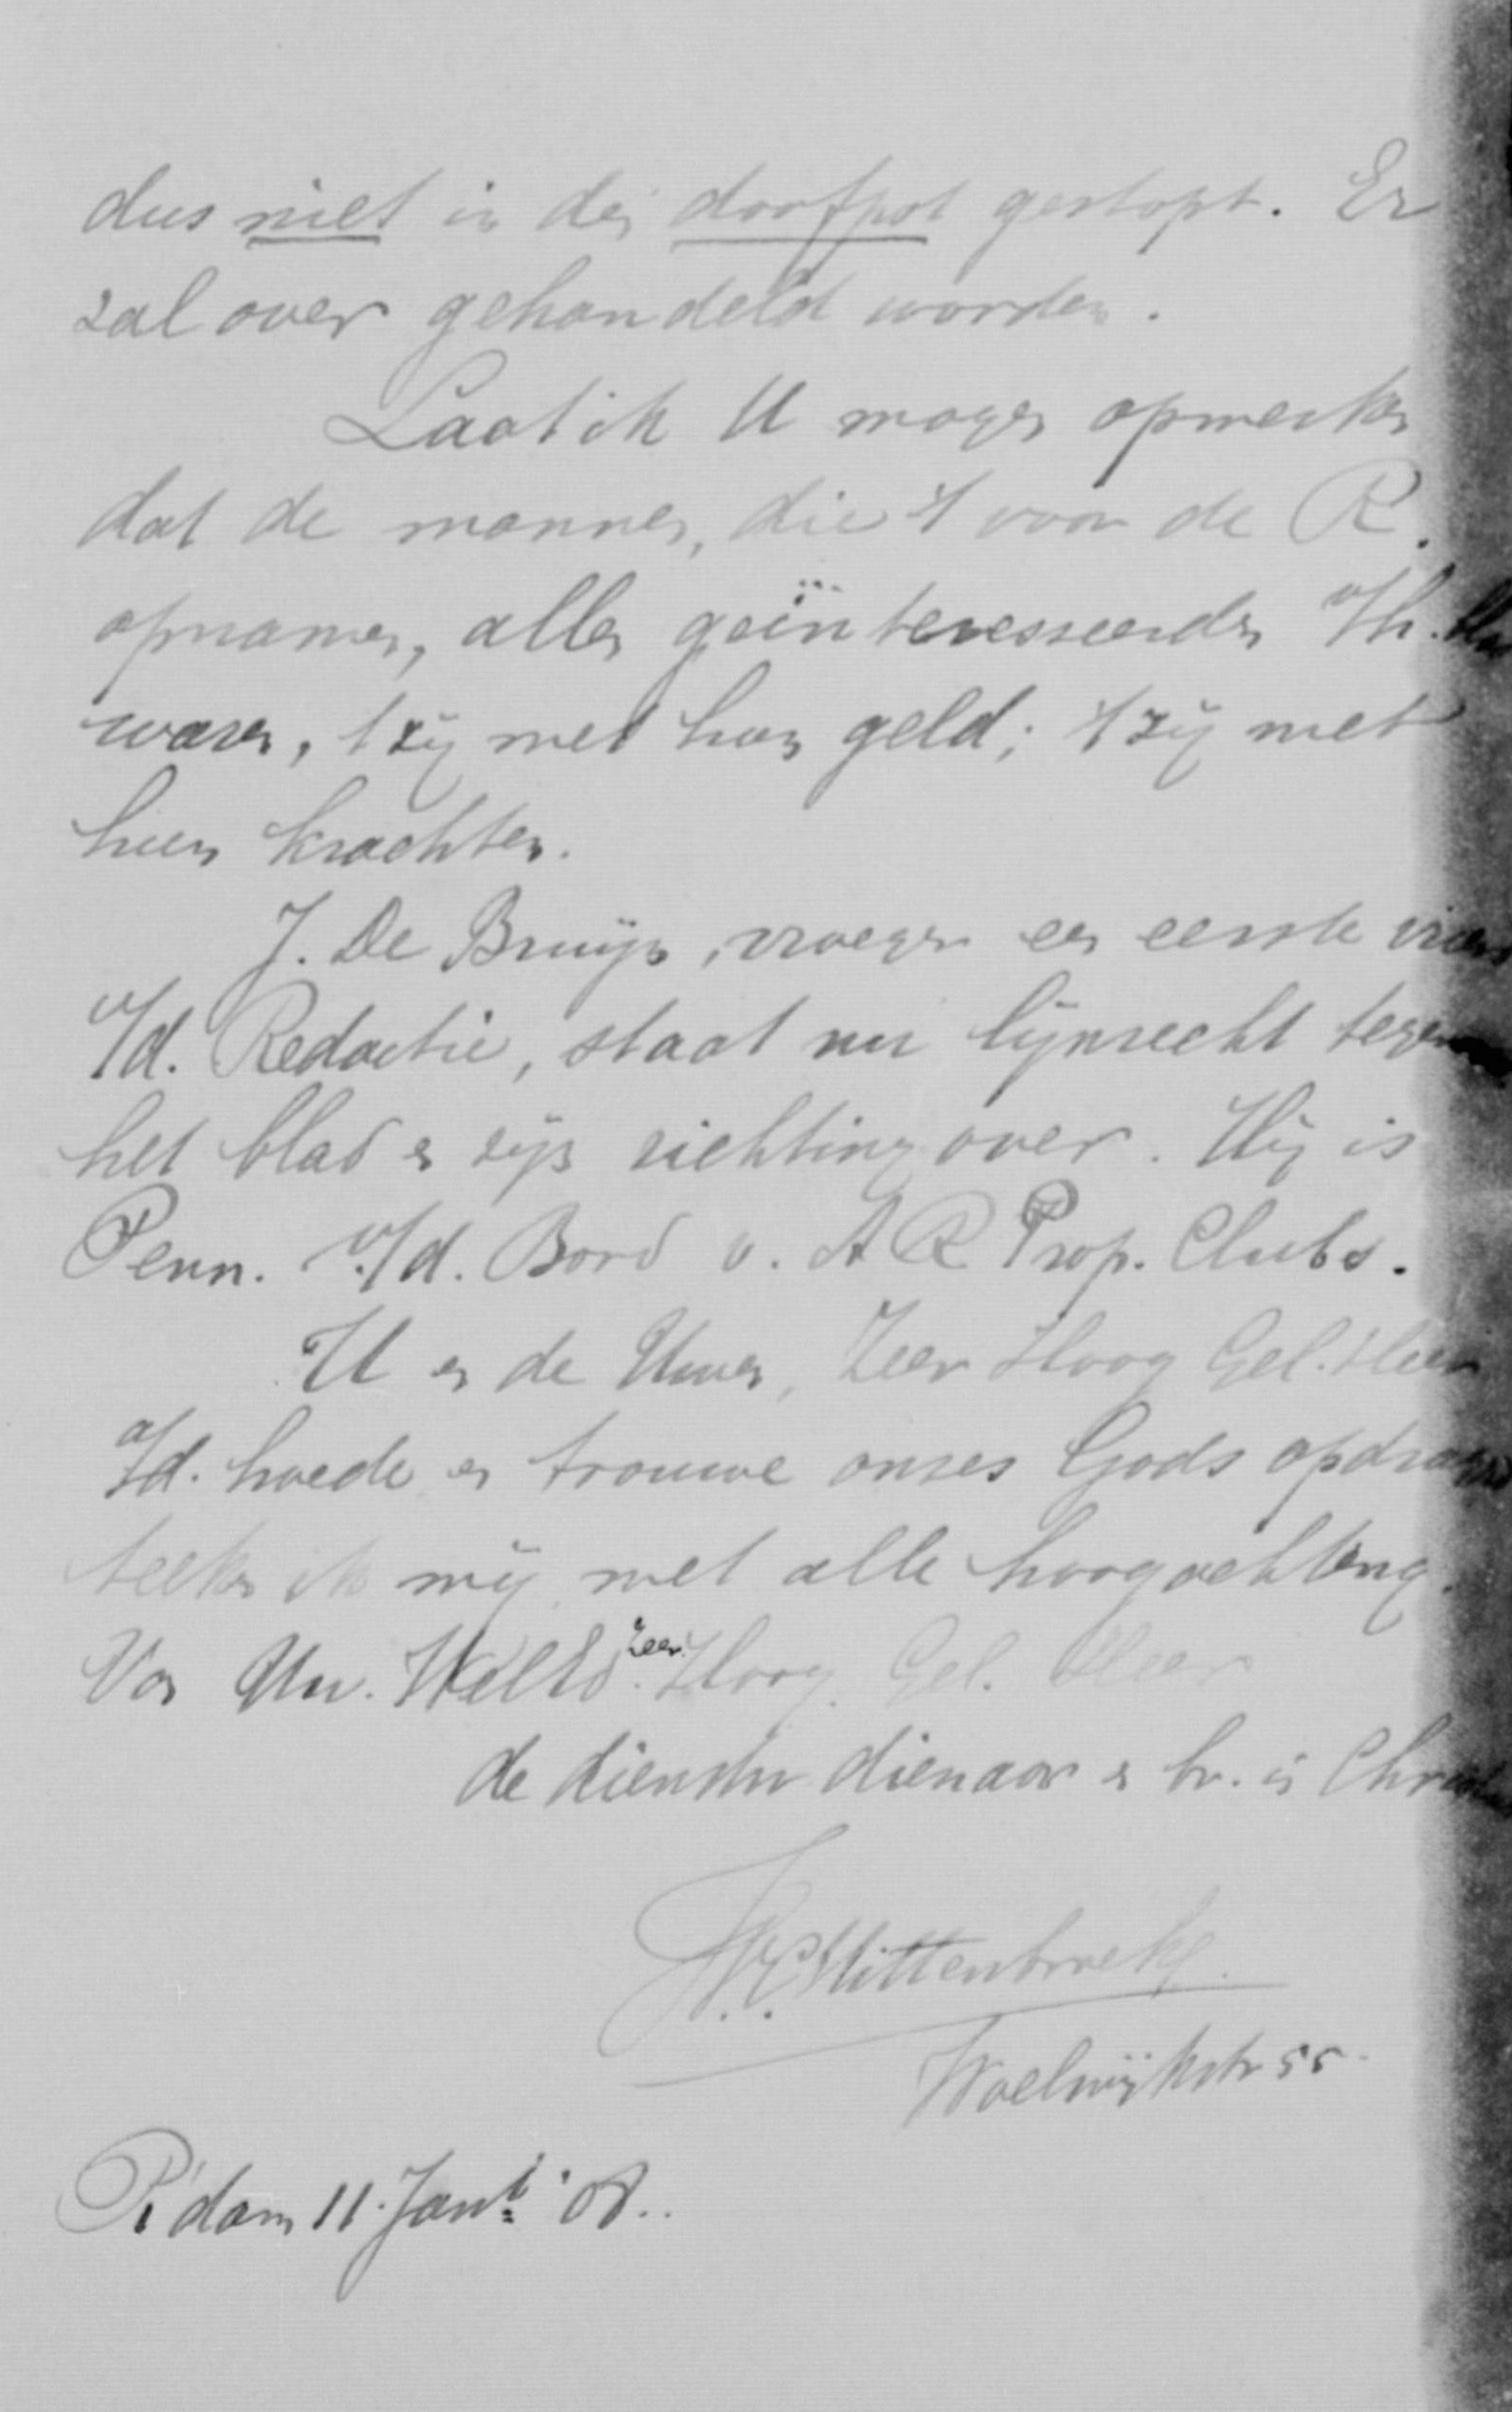 dus niet in den doofpot gestopt. Er
zal over gehandeld worden.
Laat ik U mogen opmerken
dat de mannen, die 't voor de R.
opnamen, allen geïnteresseerden
waren, 't zij met hun geld; 't zij met
hun krachten.
J. De Bruijn, vroeger een eerste
v/d. Redactie, staat nu lijnrecht tegen
het blad en zijn richting over. Hij is
Penn. v/d. Bond v. A R Prop. Clubs.
U en de Uwen, Zeer Hoog Gel. Heer
a/d. hoede en trouwe onzes Gods
teeken ik mij met alle hoogachting.
Van Uw. WelEd. Zeer Hoog. Gel. Heer
de dienstw dienaar en br. in
Mittenbroek
55
R'dam 11. Jan. '08.